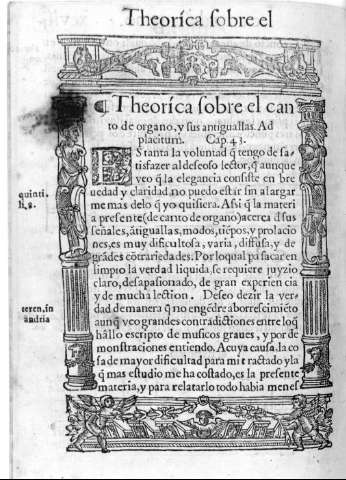 Theorica sobre el
¶ Theorica sobre el can
to de organo, y sus antiguallas. Ad
placitum. Cap 43.
ES tanta la voluntad q̃ tengo de sa-
tisfazer al deseoso lector, q̃ aunque
veo q̃ la elegancia consiste en bre
uedad y claridad no puedo estar sin alargar
me mas delo q̃ yo quisiera. Assi q̃ la materi
a presente (de canto de organo) acerca dsus
señales, ãtiguallas, modos, tiẽpos, y prolacio
nes, es muy dificultosa, varia, diffusa, y de
grãdes cõtrariedades. Por loqual pa sacar en
limpio la verdad liquida, se requiere juyzio
claro, desapasionado, de gran experiencia
y de mucha lection. Deseo dezir la ver-
dad demanera q̃ no engẽdre aborrescimiẽto
aunq̃ veo grandes contradictiones entre loq̃
hãllo escripto de musicos graues, y por de
monstraciones entiendo. A cuya causa. la co
sa de mayor dificultad para mi tractado y la
q̃ mas estudio me ha costado, es la presente
materia, y para relatarlo todo hauia menes
quinti.
li, 8.
teren, in
ãndria